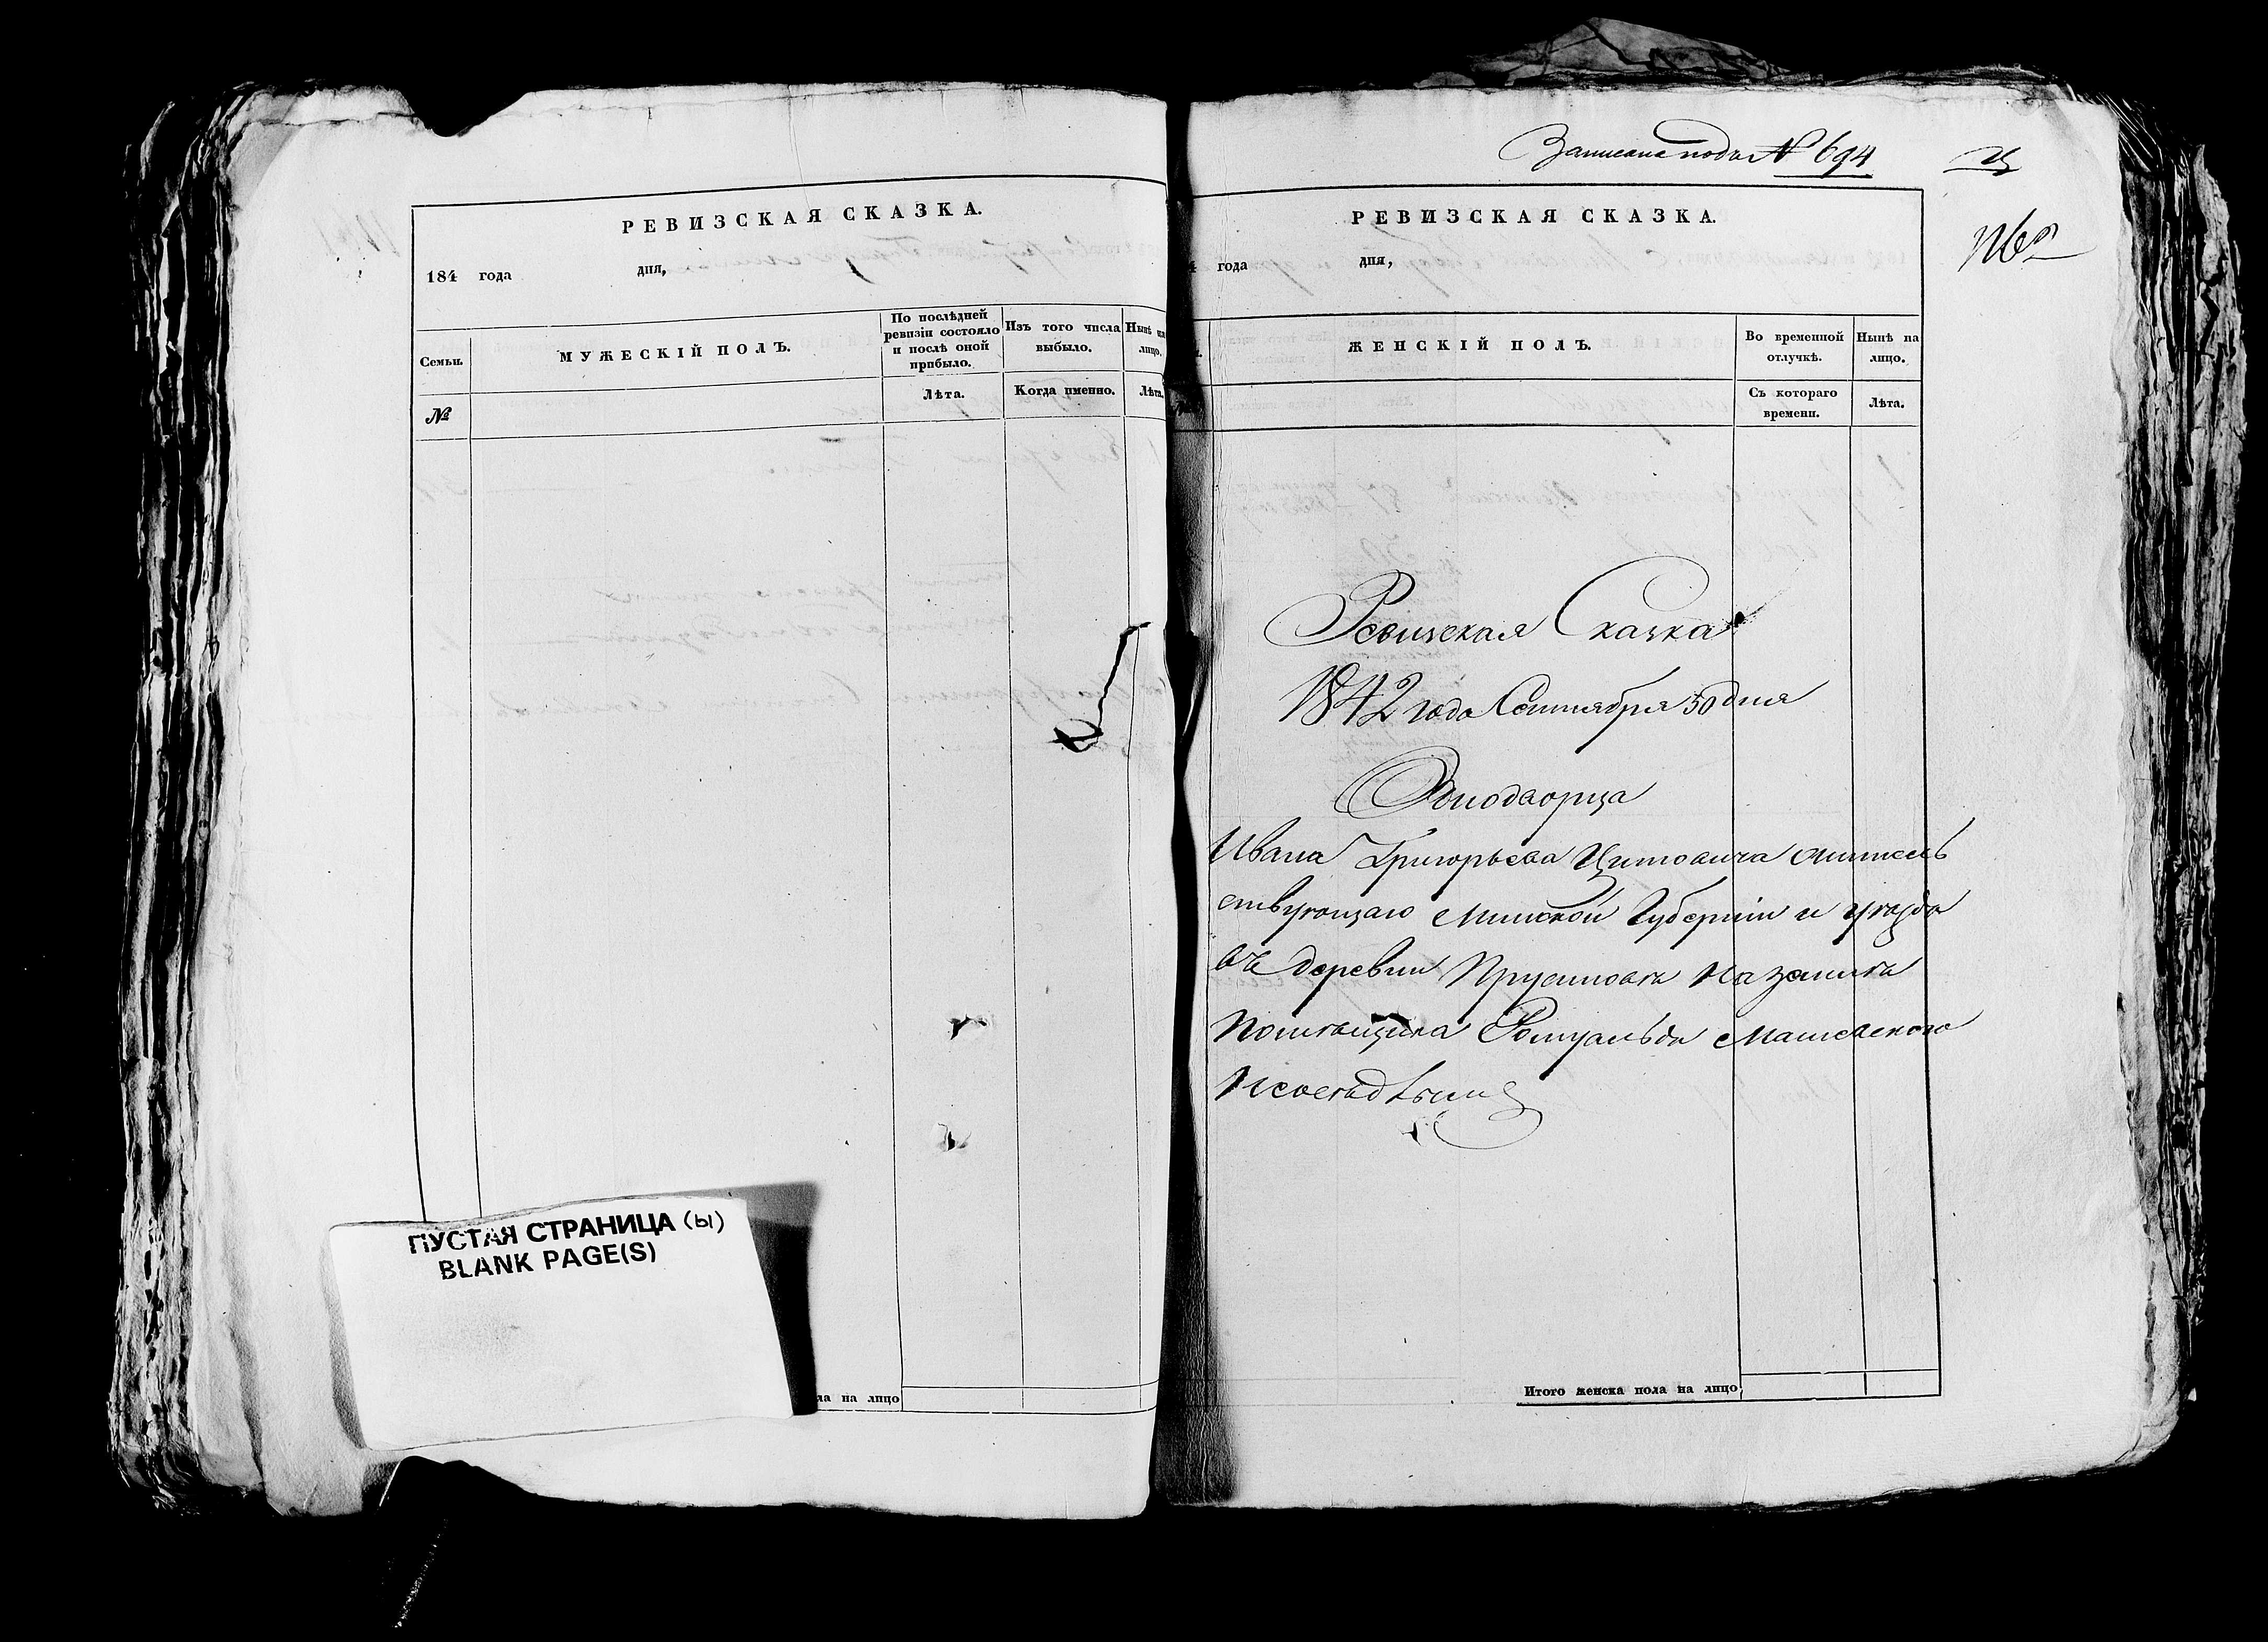 РЕВИЗСКАЯ СКАЗКА.
184 года дня,
Семьи.
МУЖЕСКІЙ ПОЛЪ.
По послѣдней ревизіи состояло и послѣ оной прибыло.
Изъ того числа выбыло.
Нынѣ на лицо.
№
Лѣта.
Когда именно.
Лѣта.
ПУСТАЯ СТРАНИЦА (Ы)
BLANK PAGE(S)
на лицо
Записана подъ № 694
Ц
РЕВИЗСКАЯ СКАЗКА.
года дня,
ЖЕНСКІЙ ПОЛЪ.
Во временной отлучкѣ.
Нынѣ на лицо.
Съ котораго времени.
Лѣта.
Ревизская Сказка
1842 года Сентября 30 дня
Однодворца
Ивана Григорьева Цитовича жител
ствующаго Минской Губерніи и уѣзда
въ деревни Прусиновки На земли
Помѣщика Ромуальда
Итого женска пола на лицо